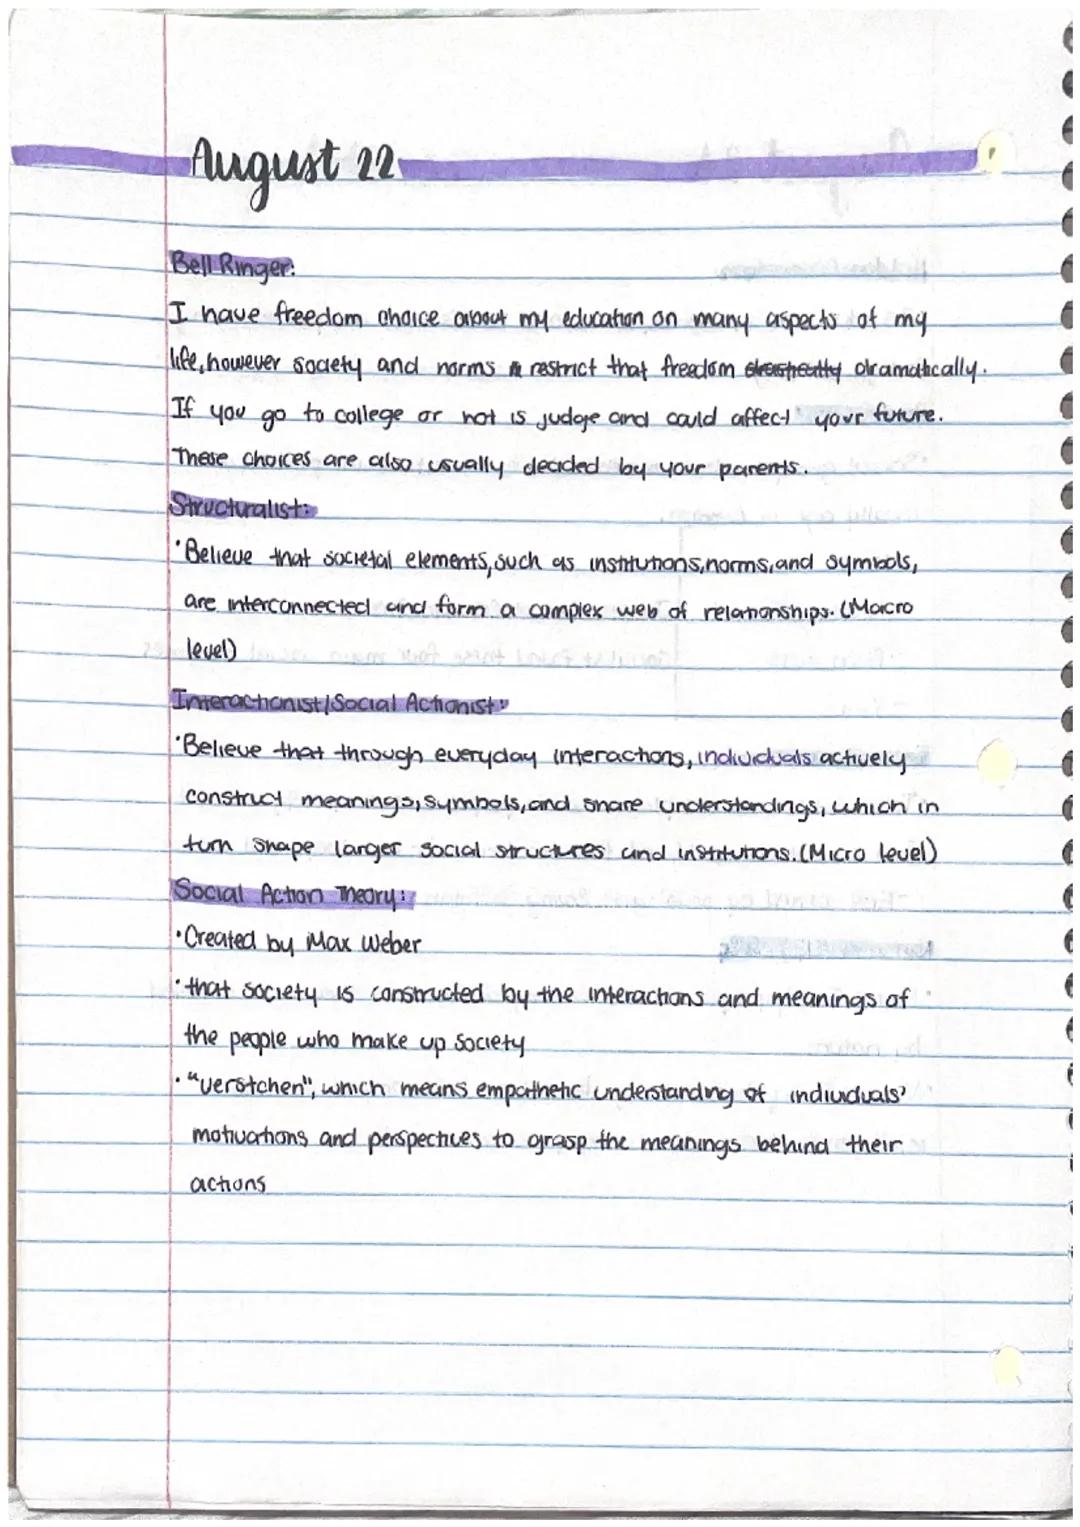 August 22
Bell Ringer:
I have freedom choice about my education on many aspects of my
life, however society and norms restrict that freedom drastically dramatically.
If you go to college or not is judge and could affect your future.
These choices are also usually decided by your parents.
Structuralist:
• Believe that societal elements, such as institutions, norms, and symbols,
are interconnected and form a complex web of relationships. (Macro
level)
Interactionist/Social Actionist:
• Believe that through everyday interactions, individuals actively
construct meanings, symbols, and share understandings, which in
turn shape larger social structures and institutions. (Micro level)
Social Action Theory:
• Created by Max Weber
• that society is constructed by the interactions and meanings of
the people who make up society
• "verstchen", which means empathetic understanding of individuals'
motivations and perspectives to grasp the meanings behind their
actions